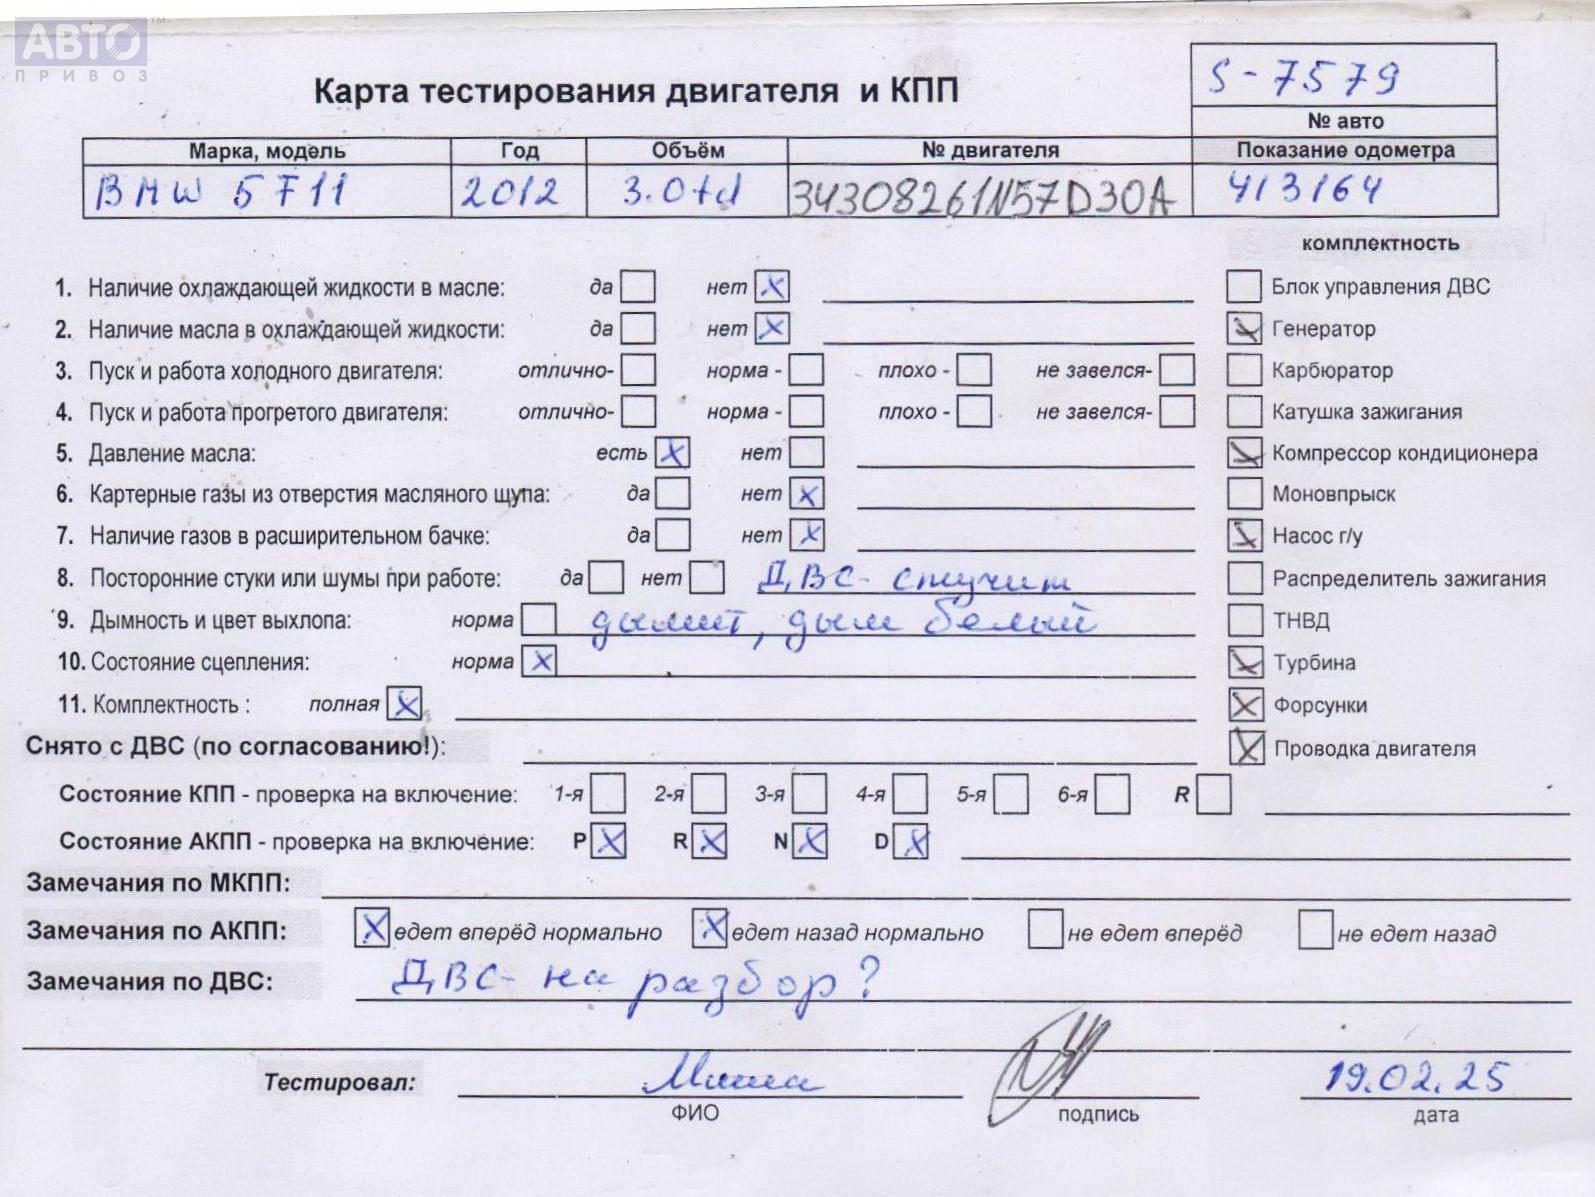 АВТО
ПРИВОЗ
S-7579
Карта тестирования двигателя и КПП
№ авто
Марка, модель Год Объём № двигателя Показание одометра
BMW 5 F11 2012 3.0td 34308261N57D30A 413164
комплектность
1. Наличие охлаждающей жидкости в масле: да нет X Блок управления ДВС
2. Наличие масла в охлаждающей жидкости: да нет X Генератор
3. Пуск и работа холодного двигателя: отлично- норма - плохо - не завелся- Карбюратор
4. Пуск и работа прогретого двигателя: отлично- норма - плохо - не завелся- Катушка зажигания
5. Давление масла: есть X нет Компрессор кондиционера
6. Картерные газы из отверстия масляного щупа: да нет X Моновпрыск
7. Наличие газов в расширительном бачке: да нет X Насос г/у
8. Посторонние стуки или шумы при работе: да нет ДВС- стучит Распределитель зажигания
9. Дымность и цвет выхлопа: норма дымит, дым белый ТНВД
10. Состояние сцепления: норма X Турбина
11. Комплектность : полная X Форсунки
Снято с ДВС (по согласованию!): Проводка двигателя
Состояние КПП - проверка на включение: 1-я 2-я 3-я 4-я 5-я 6-я R
Состояние АКПП - проверка на включение: P X R X N X D X
Замечания по МКПП:
Замечания по АКПП: X едет вперёд нормально X едет назад нормально не едет вперёд не едет назад
Замечания по ДВС: ДВС- на разбор?
Тестировал: Миша 19.02.25
ФИО подпись дата